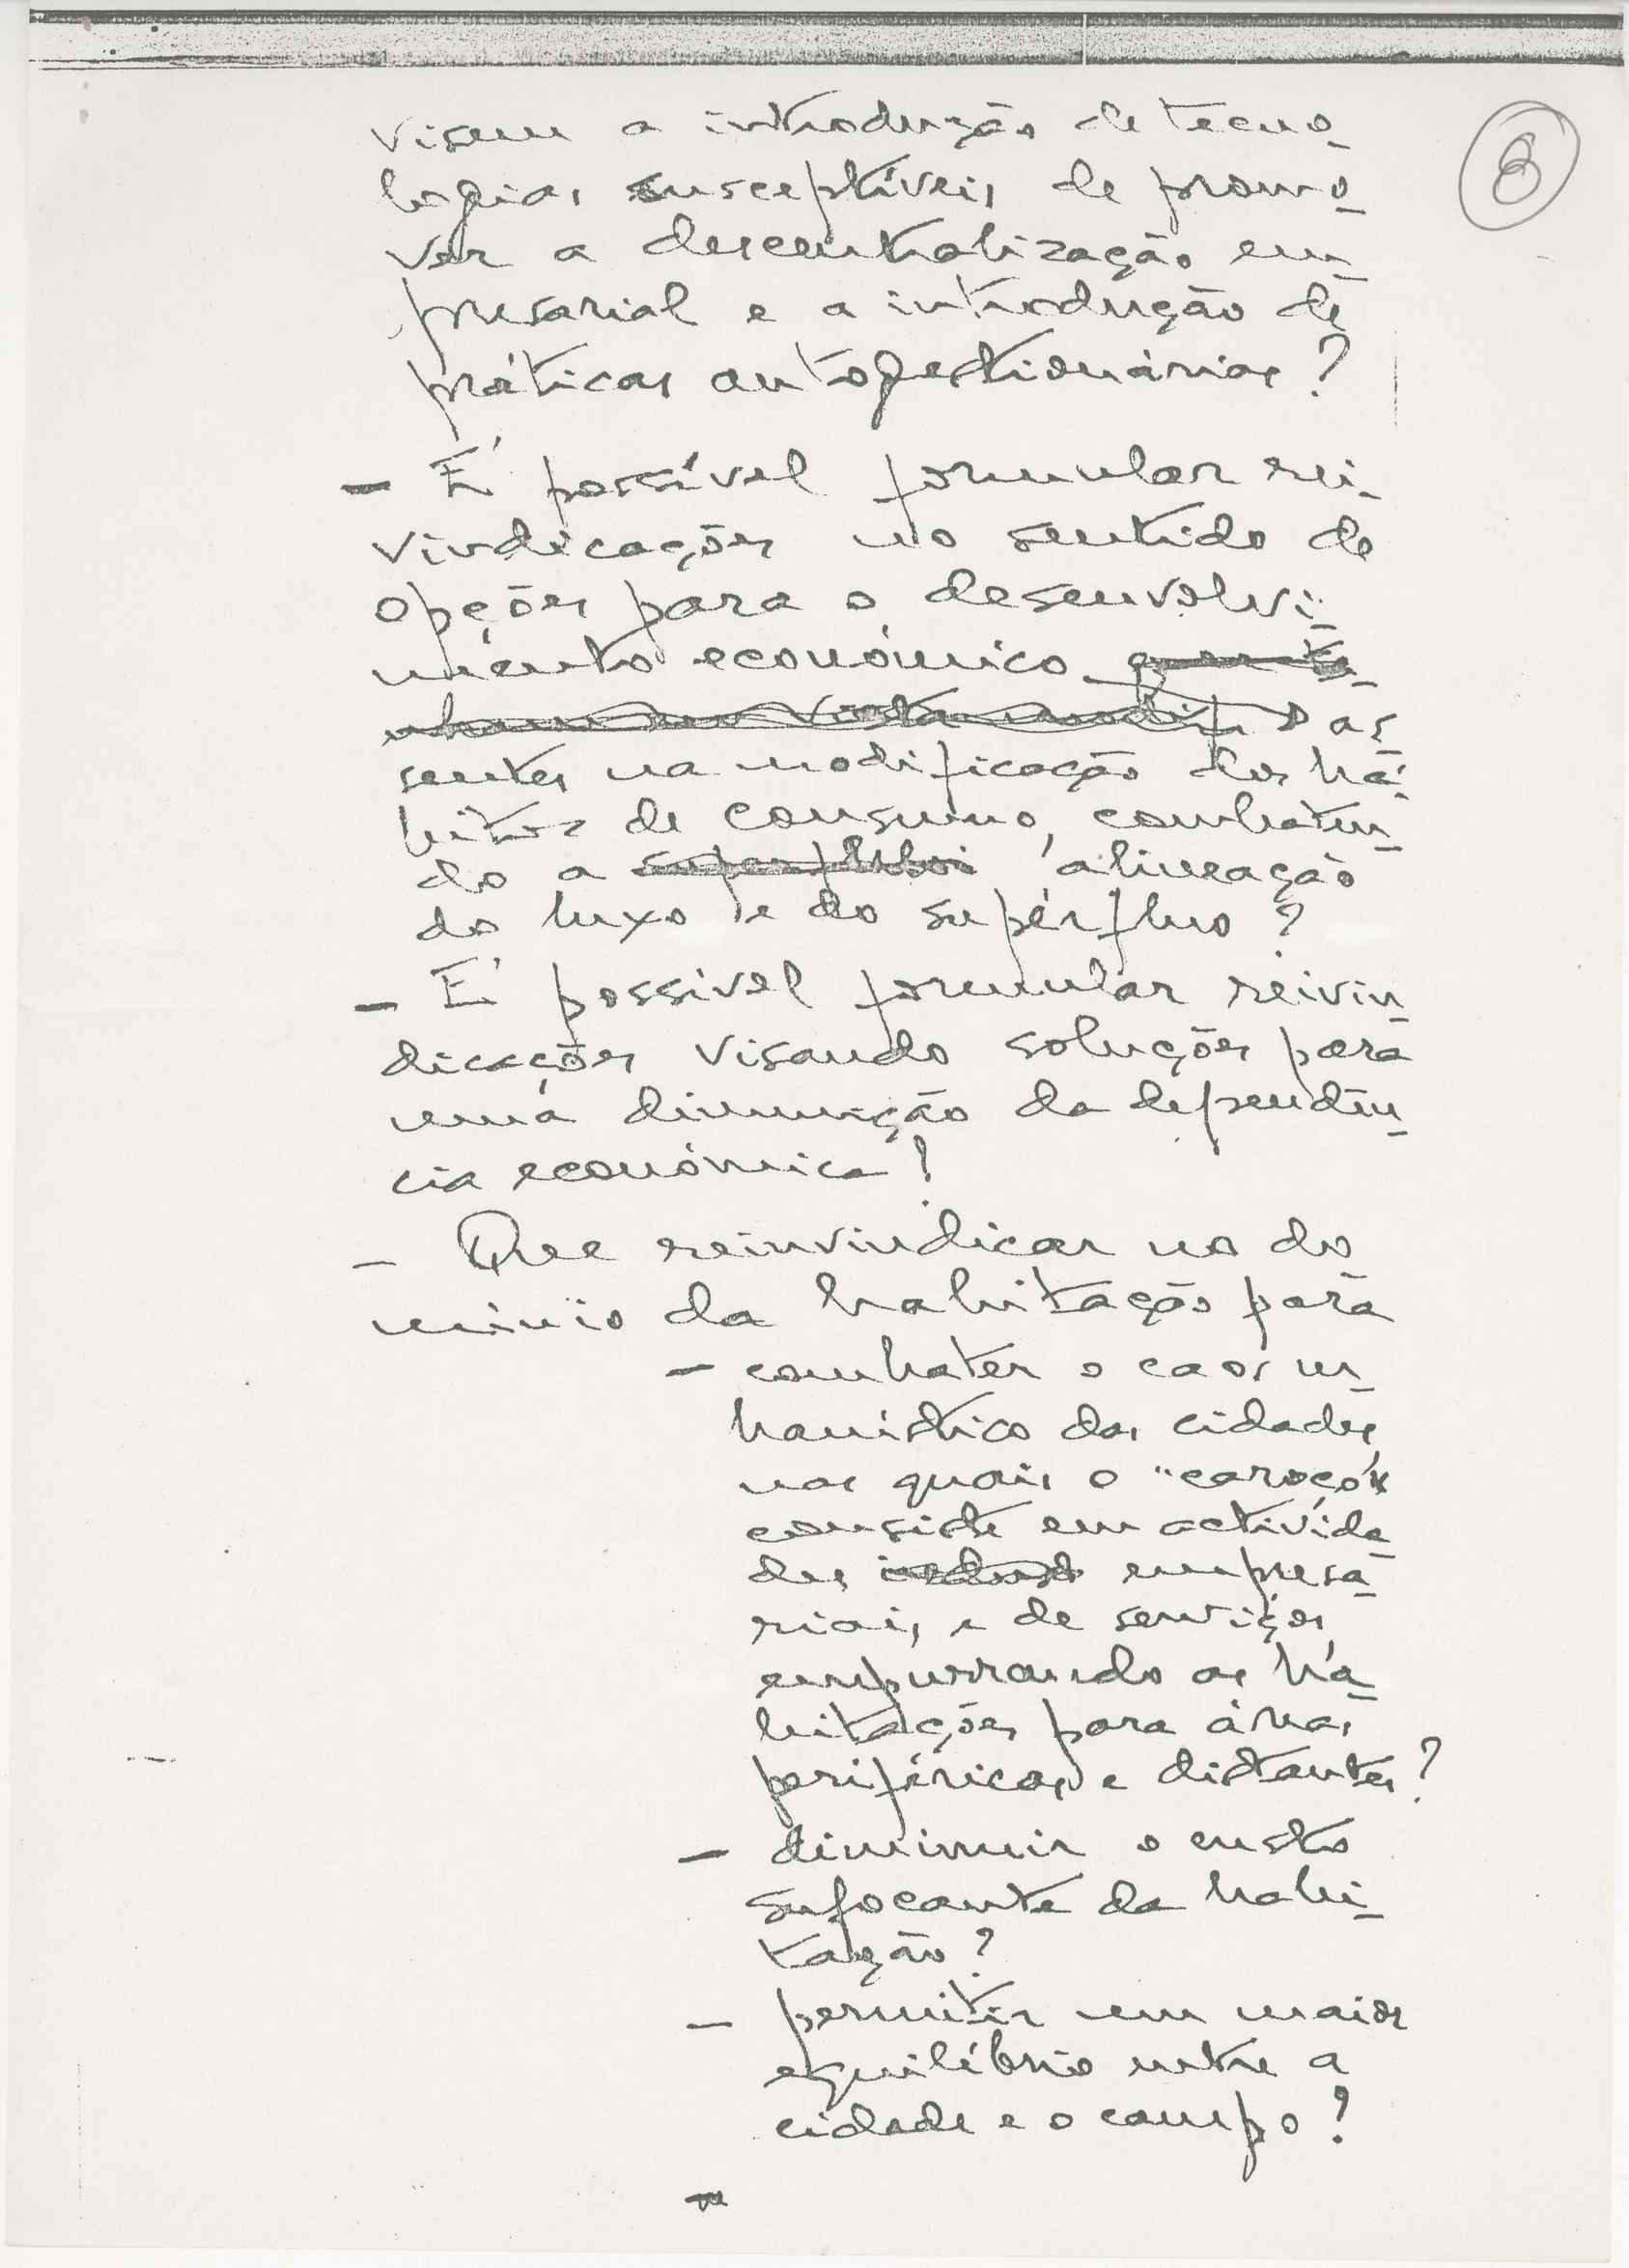 8
visem a introdução de tecno-
logias susceptíveis de promo-
ver a descentralização em-
presarial e a introdução de
práticas autogestionárias?
- É possível formular rei-
vindicações no sentido de
opções para o desenvolvi-
mento económico que te-
nham em vista modif as-
sentes na modificação dos há-
bitos de consumo, combaten-
do a alineação
do luxo e do supérfluo?
- É possível formular reivin-
dicações visando soluções para
uma diminuição da dependên-
cia económica?
- Que reinvindicar no do
mínio da habitação para
- combater o caos ur-
banístico das cidades
nas quais o "caroço"
consiste em activida-
des empresa-
riais e de serviços
empurrando as ha-
bitações para áreas
periféricas e distantes?
- diminuir o custo
sufocante da habi-
tação?
- permitir um maior
equilíbrio entre a
cidade e o campo?